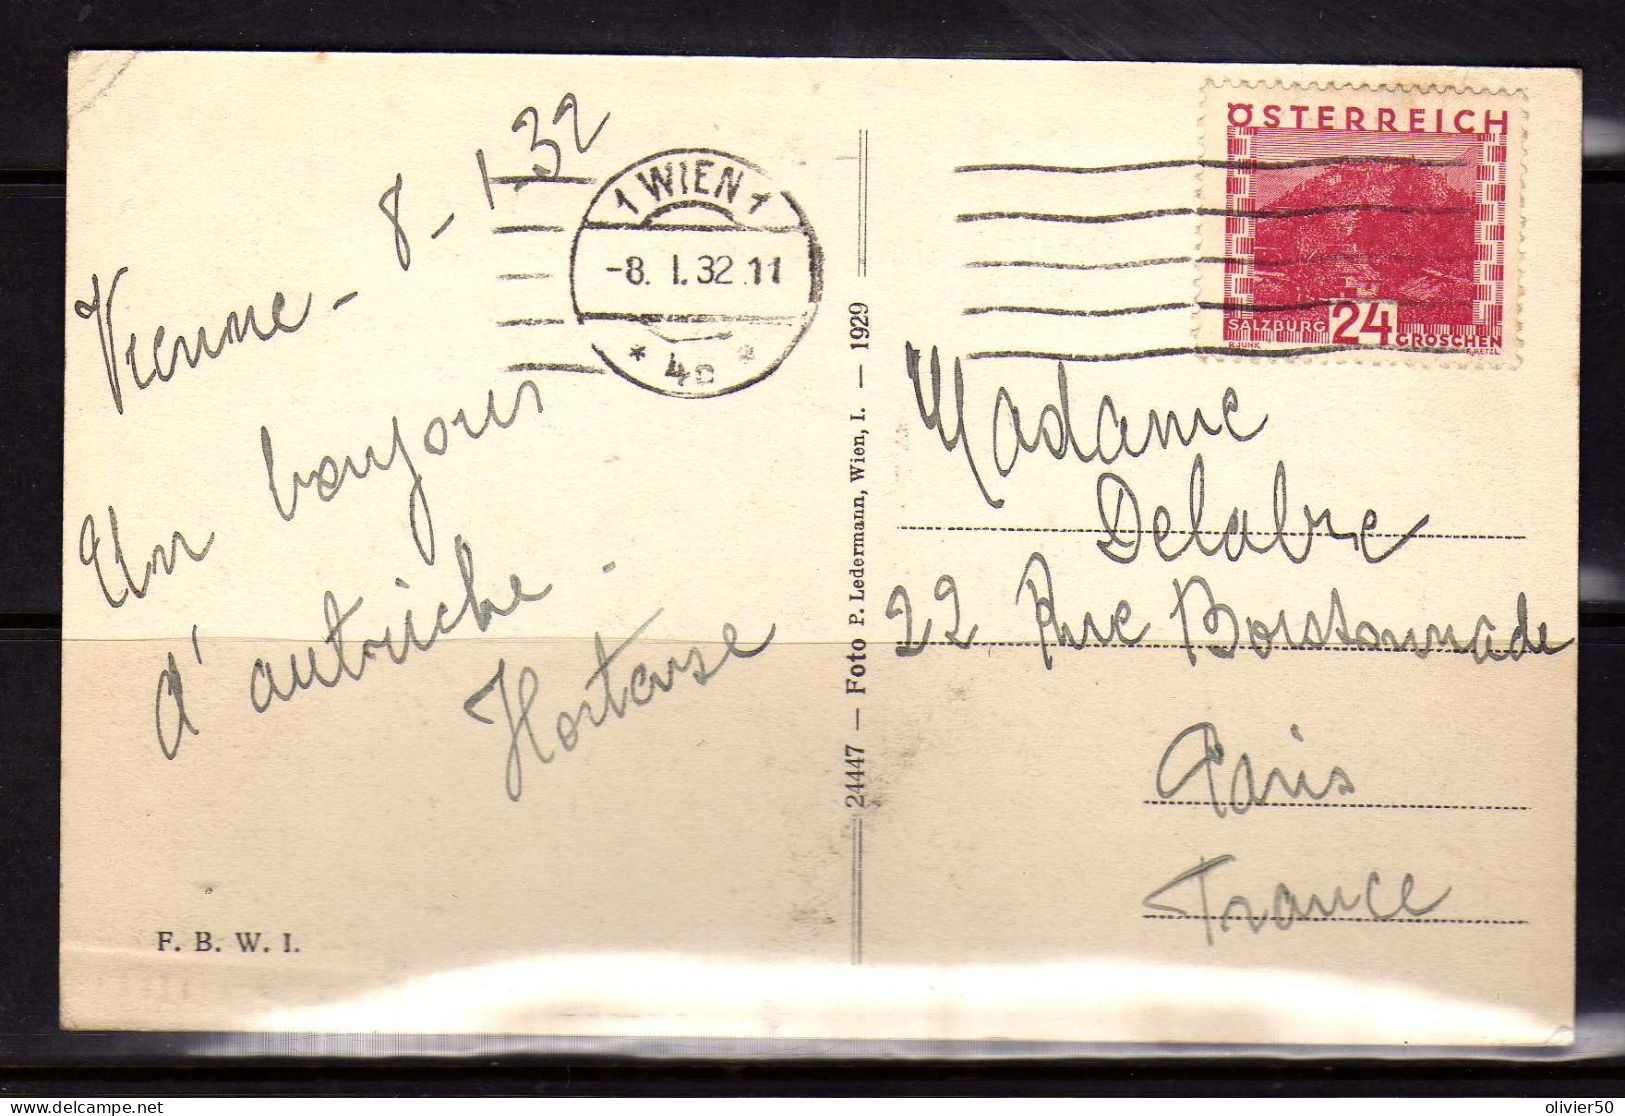 Vienne - 8-1-32
Un bonjour
d'autriche.
Hortense
F. B. W. I.
1 WIEN 1
-8. I. 32 11
* 4c *
24447 — Foto P. Ledermann, Wien, I. — 1929
ÖSTERREICH
SALZBURG 24 GROSCHEN
R.JUNK
Madame
Delabre
22 Rue Boissonnade
Paris
France
delcampe.net
olivier50